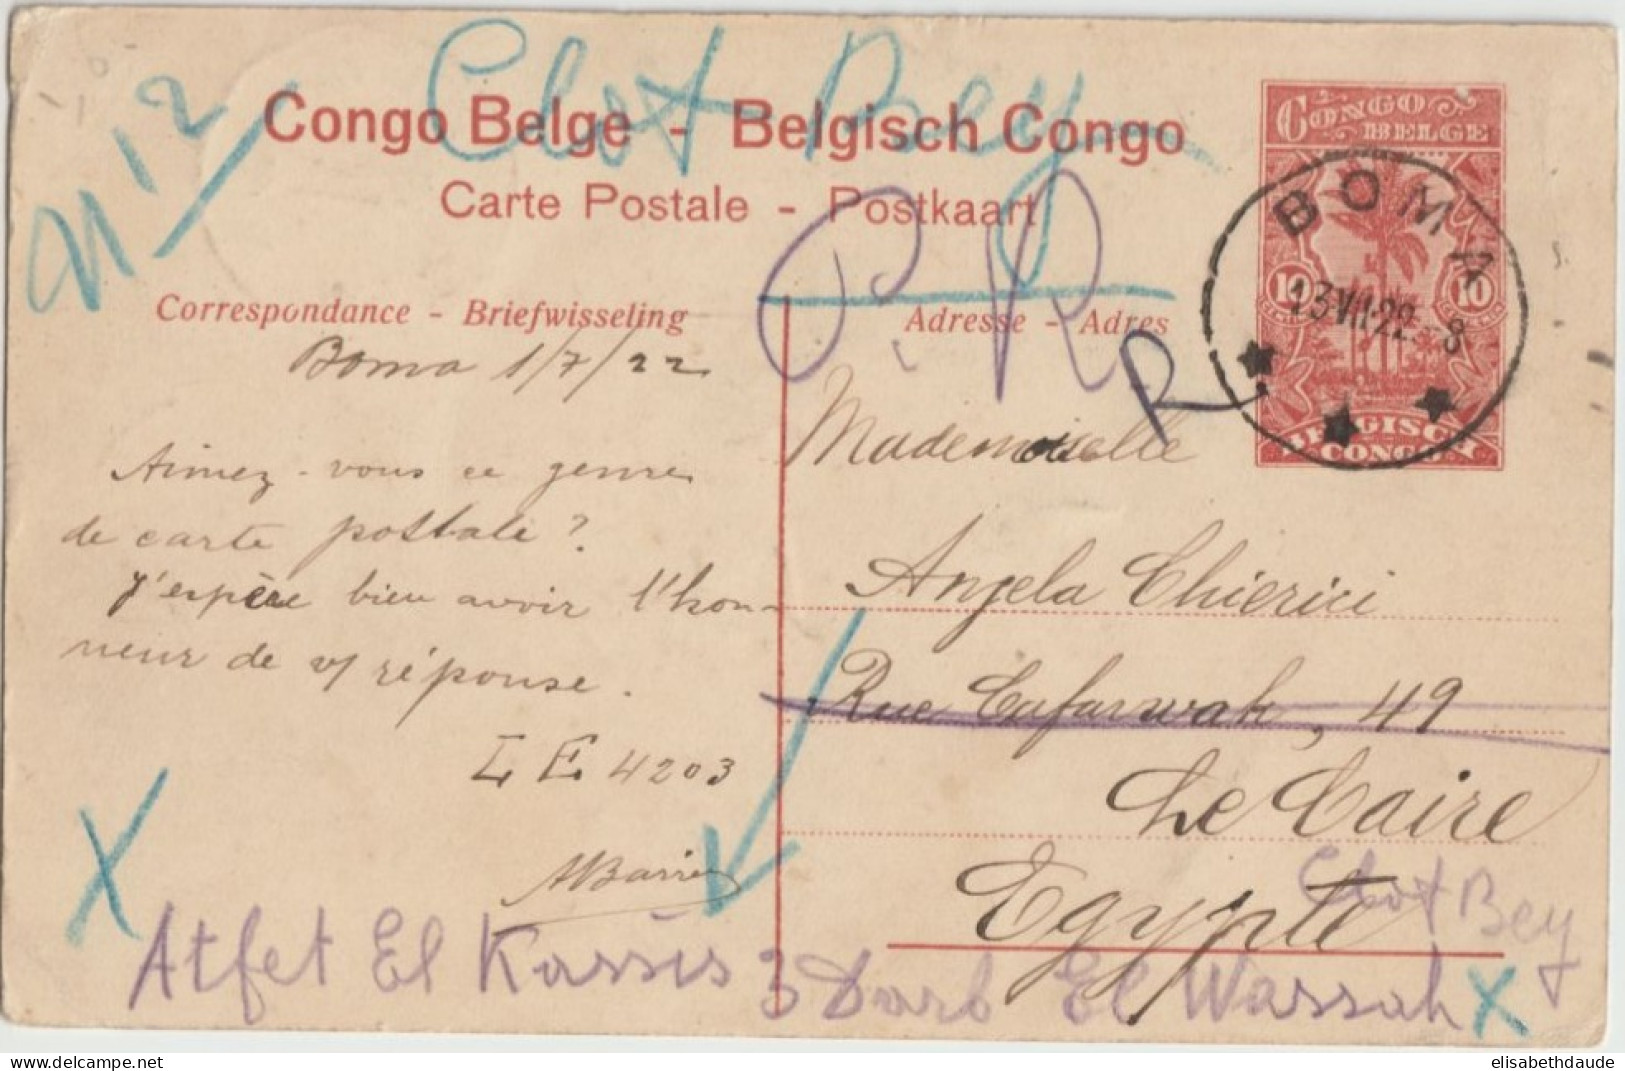 Clot Bey
N 12
Congo Belge - Belgisch Congo
Carte Postale - Postkaart
CONGO
BELGE
10 10
BELGISCH
CONGO
BOMA
13 VII 22 - 8
P. R
R
Correspondance - Briefwisseling
Adresse - Adres
Boma 1/7/22
Aimez-vous ce genre
de carte postale?
J'espère bien avoir l'hon-
neur de v/ réponse.
L E 4203
ABarri
Mademoiselle
Angela Chierici
Rue Cafarwah, 49
Le Caire
Egypte
Clot Bey
Atfet El Kassis 3 Darb El Wassah
X
X
elisabethdaude